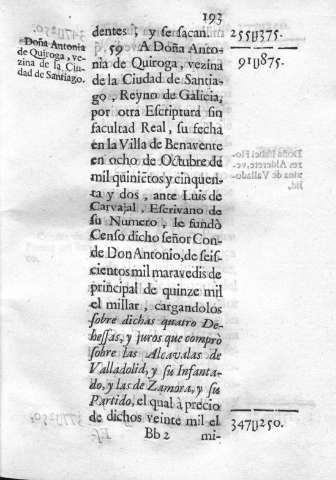 193
dentes; y se sacan.
255U375.
59 A Doña Anto-
nia de Quiroga, vezina
de la Ciudad de Santia-
go, Reyno de Galicia,
por otra Escriptura sin
facultad Real, su fecha
en la Villa de Benavente
en ocho de Octubre de
mil quinictos y cinquen-
ta y dos, ante Luis de
Carvajal, Escrivano de
su Numero, le fundò
Censo dicho señor Con-
de Don Antonio, de seis-
cientos mil maravedis de
principal de quinze mil
el millar, cargandolos
sobre dichas quatro De-
hessas, y juros que comprò
sobre las Alcavalas de
Valladolid, y su Infanta-
do, y las de Zamora, y su
Partido, el qual à precio
de dichos veinte mil el
Bb 2 mi-
Doña Antonia
de Quiroga, ve-
zina de la Ciu-
dad de Santiago.
91U875.
347U250.